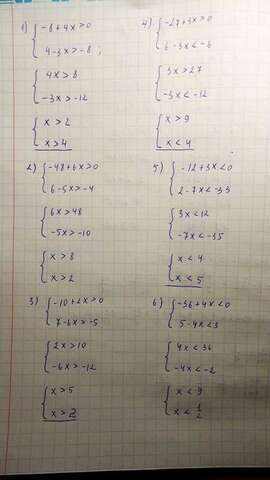 1) { -8+4x>0
4-3x>-8 ;
{ 4x>8
-3x>-12
{ x>2
x>4
2) { -48+6x>0
6-5x>-4
{ 6x>48
-5x>-10
{ x>8
x>2
3) { -10+2x>0
7-6x>-5
{ 2x>10
-6x>-12
{ x>5
x>2
4) { -27+3x>0
6-3x<-6
{ 3x>27
-3x<-12
{ x>9
x<4
5) { -12+3x<0
2-7x<-33
{ 3x<12
-7x<-35
{ x<4
x<5
6) { -36+4x<0
5-4x<3
{ 4x<36
-4x<-2
{ x<9
x<1/2